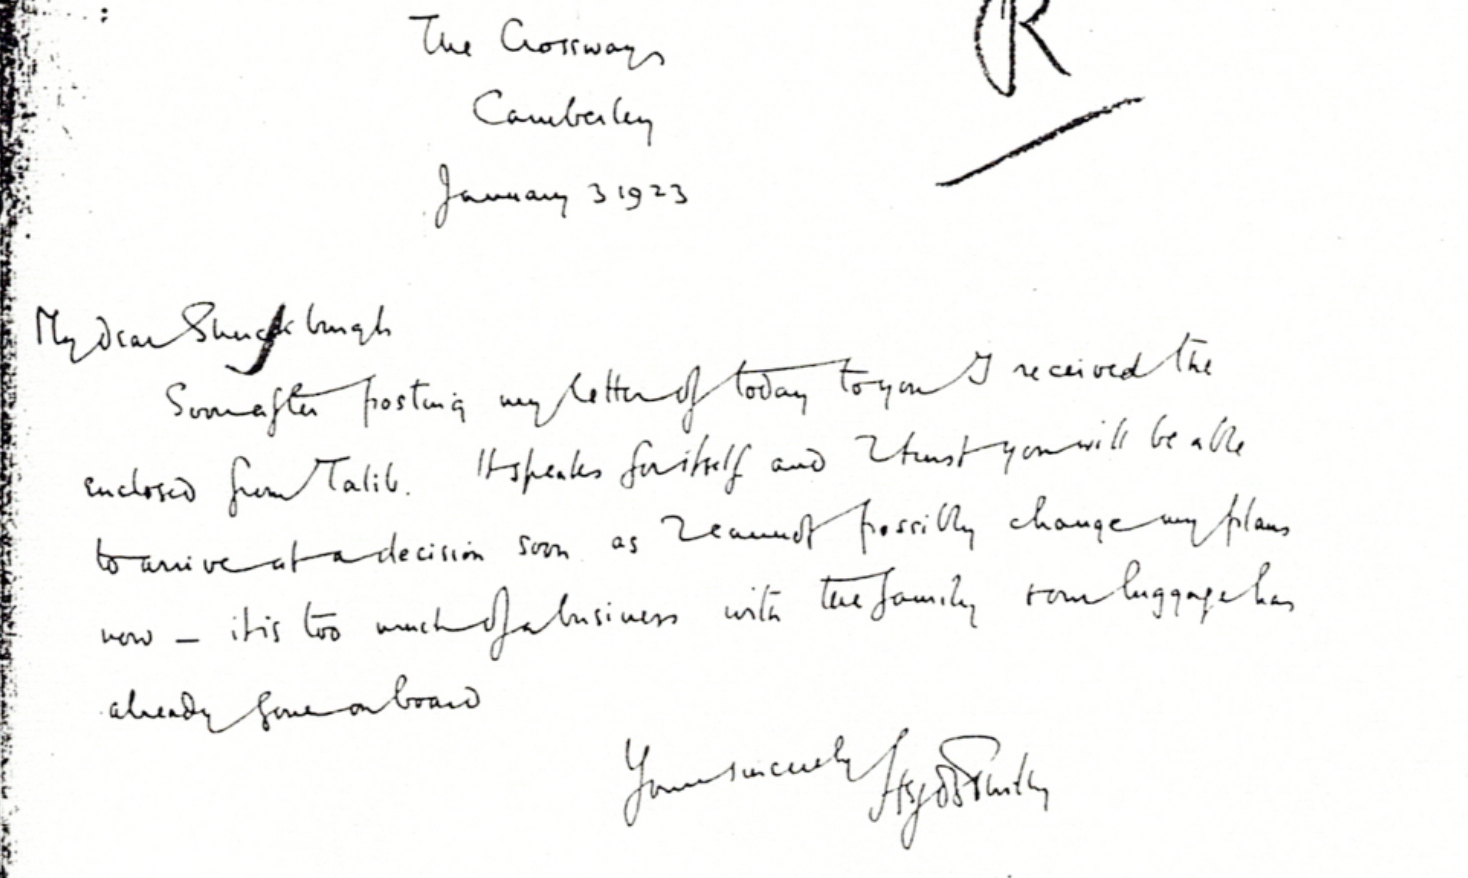 R
The Crossways
Camberley
January 3 1923
My dear Shuckburgh
Soon after posting my letter of today to you I received the
enclosed from Talib. It speaks for itself and I trust you will be able
to arrive at a decision soon as I cannot possibly change my plans
now – it is too much of a business with the family & our luggage has
already gone on board
Yours sincerely H StJ B Philby